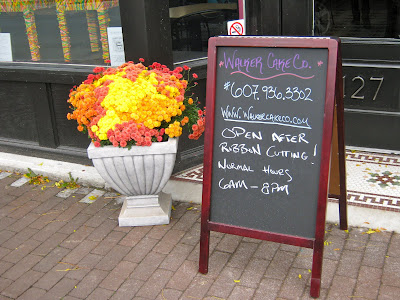 Walker Cake Co.
#607.936.3302
www.Walkercakeco.com
OPEN AFTER
RIBBON CUTTING!
NORMAL HOURS
6AM - 8PM
127